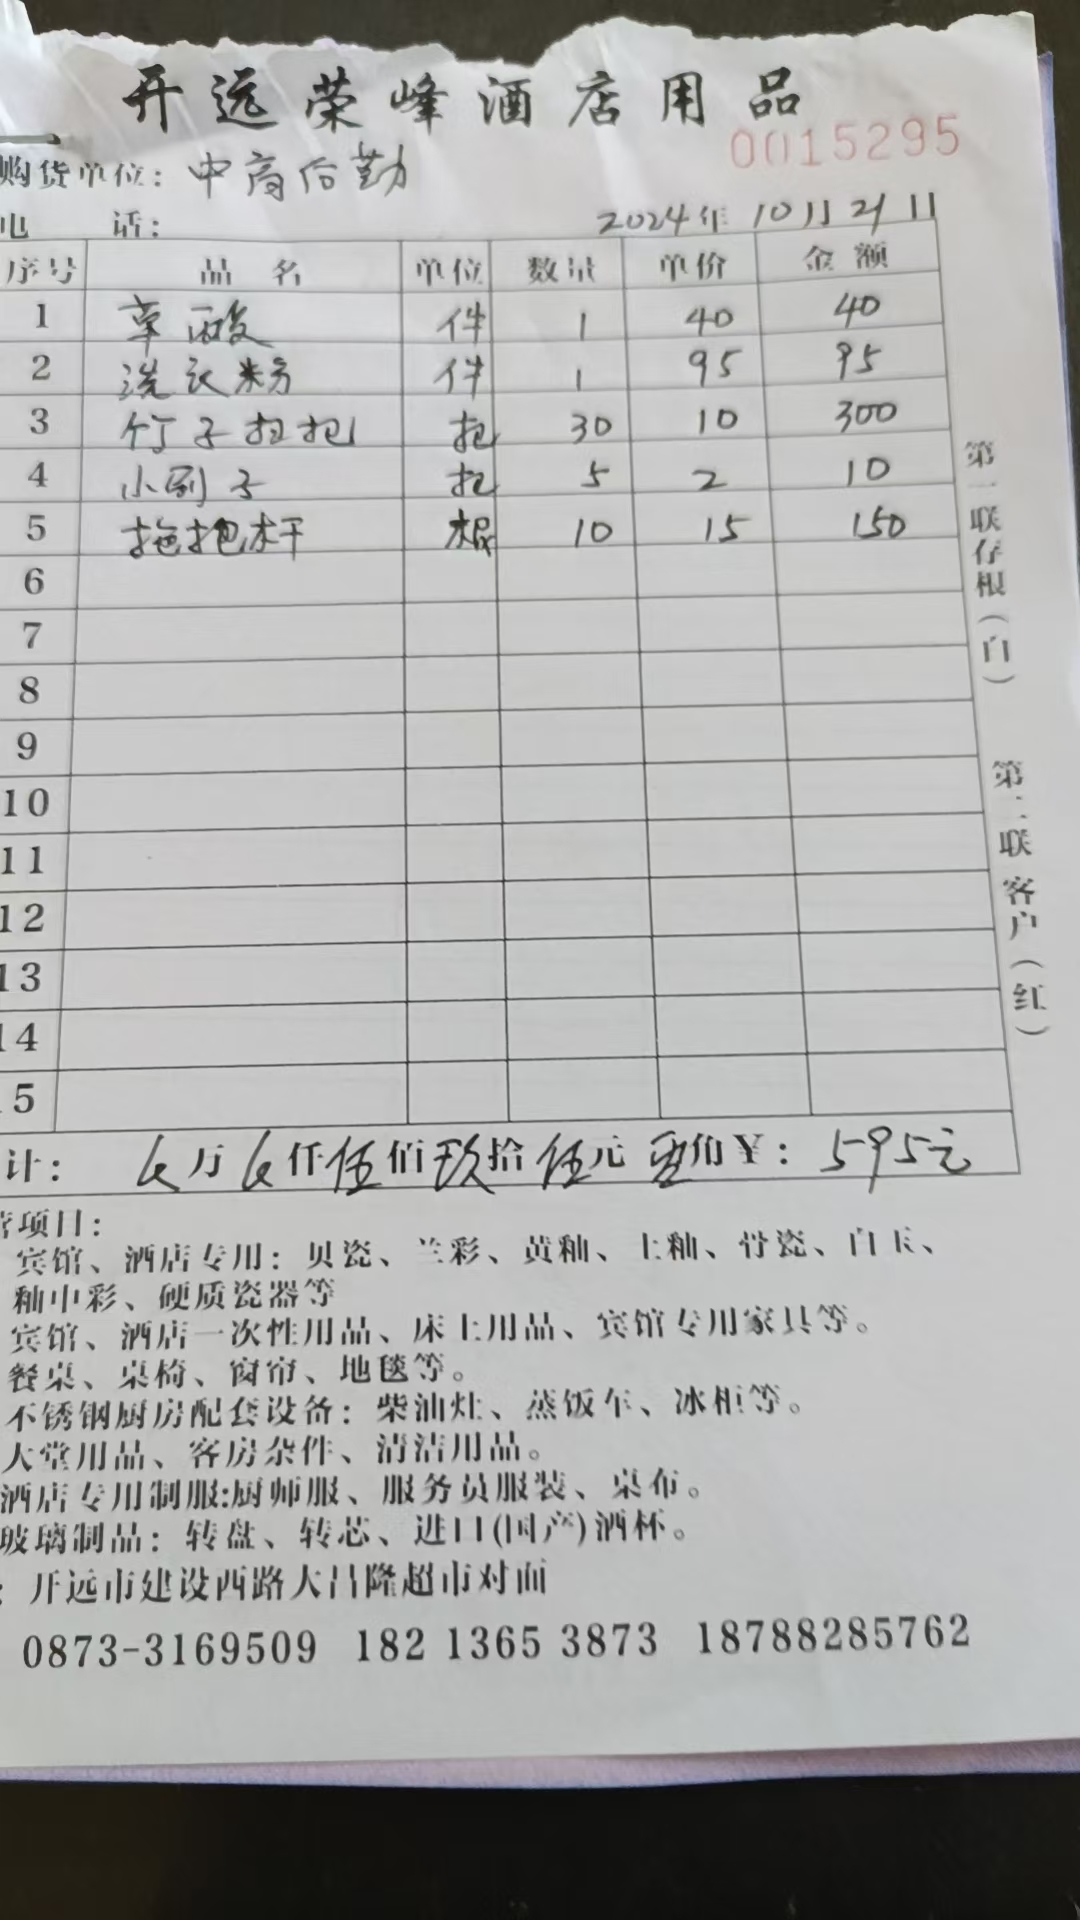 开远荣峰酒店用品
0015295
购货单位：中商后勤
电 话：
2024年10月21日
序号 品名 单位 数量 单价 金额
1 草酸 件 1 40 40
2 洗衣粉 件 1 95 95
3 竹子扫把 把 30 10 300
4 小刷子 把 5 2 10
5 拖把杆 根 10 15 150
6
7
8
9
10
11
12
13
14
15
计： 万 仟伍佰玖拾伍元 角￥：595元
第一联存根（白） 第二联客户（红）
营项目：
宾馆、酒店专用：贝瓷、兰彩、黄釉、土釉、骨瓷、白玉、
釉中彩、硬质瓷器等
宾馆、酒店一次性用品、床上用品、宾馆专用家具等。
餐桌、桌椅、窗帘、地毯等。
不锈钢厨房配套设备：柴油灶、蒸饭车、冰柜等。
大堂用品、客房杂件、清洁用品。
酒店专用制服:厨师服、服务员服装、桌布。
玻璃制品：转盘、转芯、进口(国产)酒杯。
：开远市建设西路大昌隆超市对面
0873-3169509 182 1365 3873 18788285762